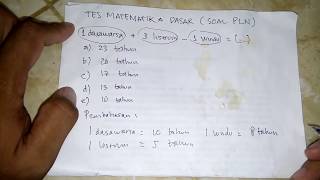 TES MATEMATIKA DASAR (SOAL PLN)
1 dasawarsa + 3 lustrum - 1 windu = (...)
a) 23 tahun
b) 20 tahun
c) 17 tahun
d) 13 tahun
e) 10 tahun
Pembahasan :
1 dasawarsa = 10 tahun 1 windu = 8 tahun
1 lustrum = 5 tahun